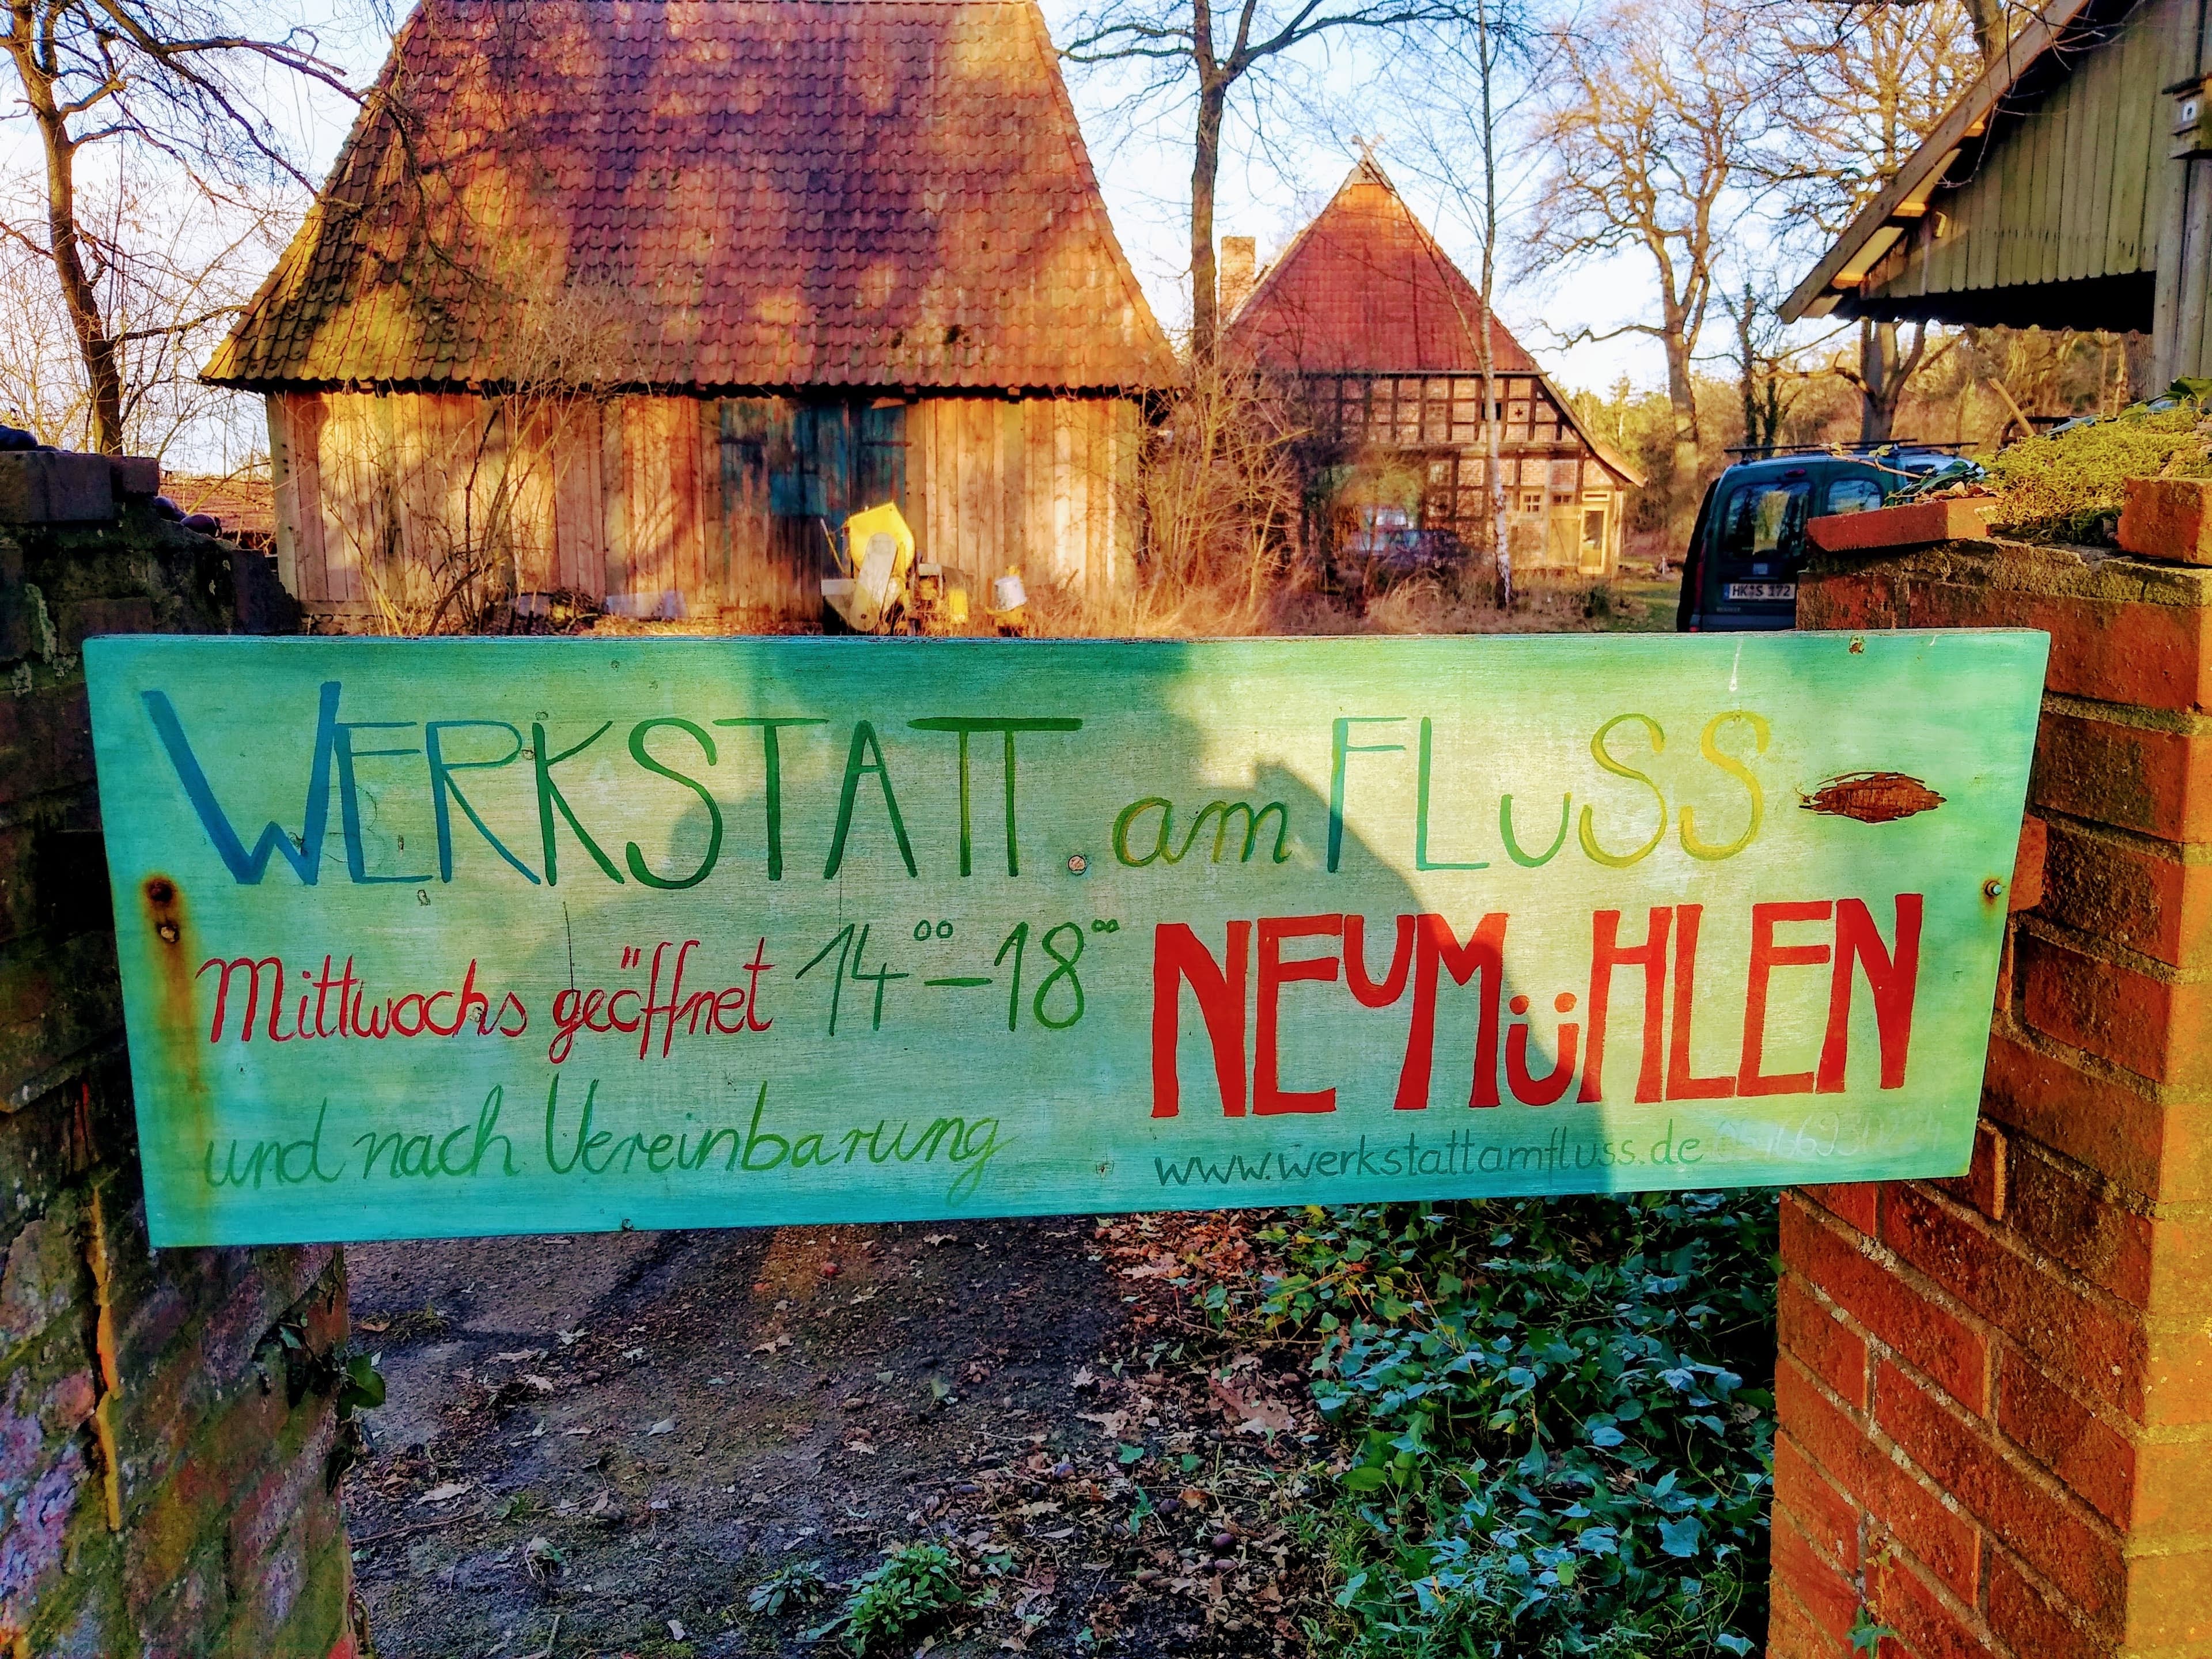 WERKSTATT am FLuSS
Mittwochs geöffnet 14°°-18°°
NEuMüHLEN
und nach Vereinbarung
www.werkstattamfluss.de
HK S 172